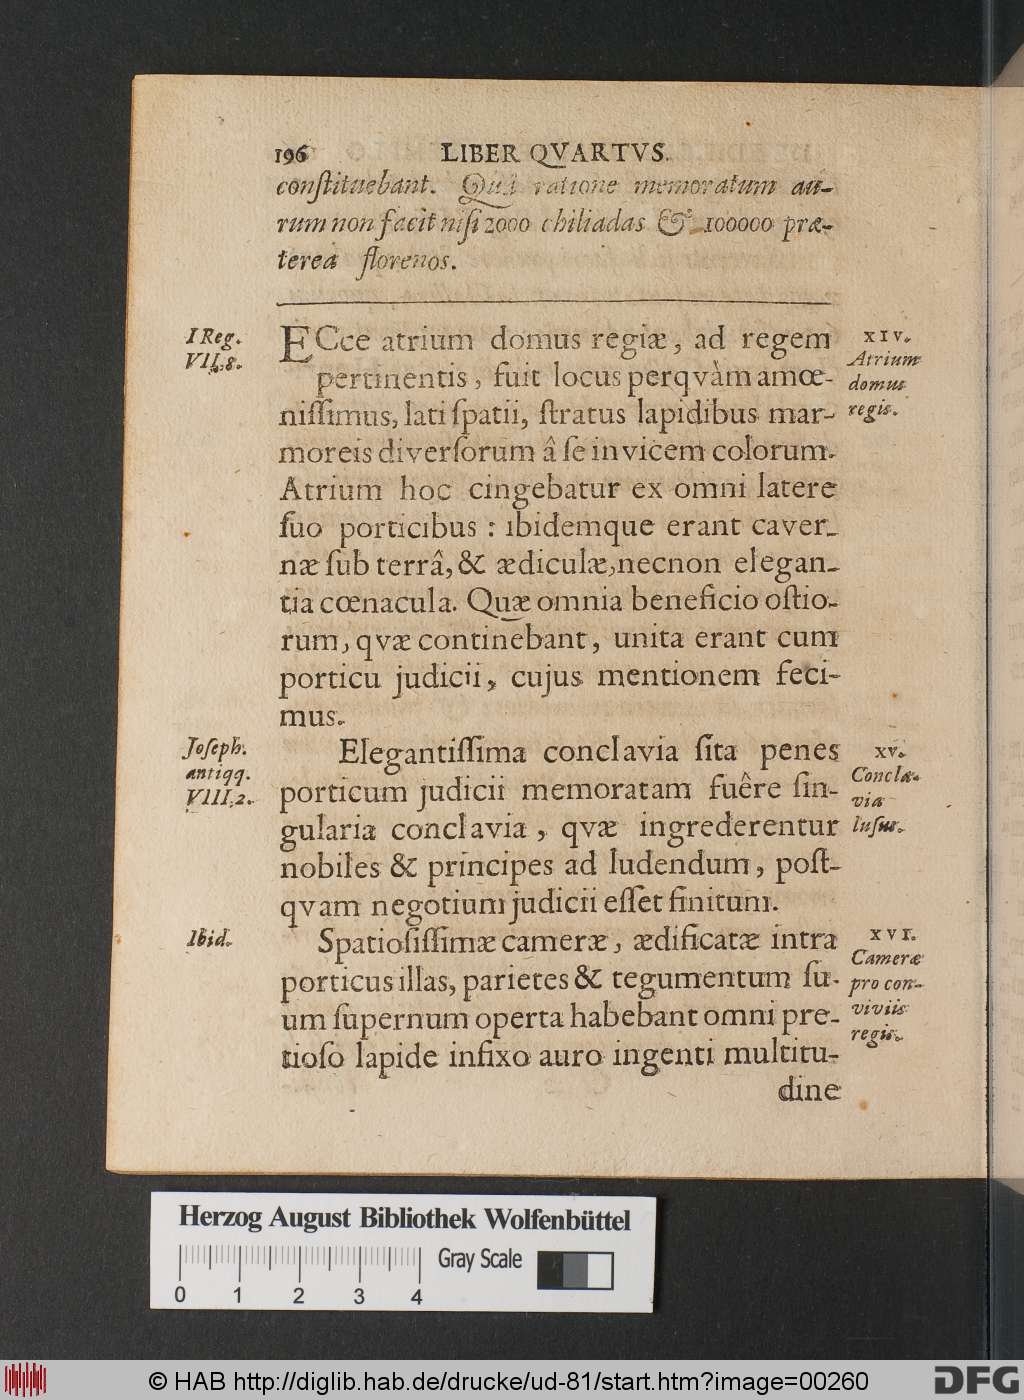 196 LIBER QVARTVS.
constituebant. Quâ ratione memoratum au-
rum non facit nisi 2000 chiliadas & 100000 præ-
terea florenos.
I Reg.
VII. 8.
ECce atrium domus regiæ, ad regem
pertinentis, fuit locus perqvàm amœ-
nissimus, lati spatii, stratus lapidibus mar-
moreis diversorum â se invicem colorum.
Atrium hoc cingebatur ex omni latere
suo porticibus : ibidemque erant caver-
næ sub terrâ, & ædiculæ, necnon elegan-
tia cœnacula. Quæ omnia beneficio ostio-
rum, qvæ continebant, unita erant cum
porticu judicii, cujus mentionem feci-
mus.
XIV.
Atrium
domus
regis.
Joseph.
antiqq.
VIII. 2.
Elegantissima conclavia sita penes
porticum judicii memoratam fuêre sin-
gularia conclavia, qvæ ingrederentur
nobiles & principes ad ludendum, post-
qvam negotium judicii esset finitum.
XV.
Concla-
via
lusus.
Ibid.
Spatiosissimæ cameræ, ædificatæ intra
porticus illas, parietes & tegumentum su-
um supernum operta habebant omni pre-
tioso lapide infixo auro ingenti multitu-
dine
XVI.
Cameræ
pro con-
viviis
regis.
Herzog August Bibliothek Wolfenbüttel
Gray Scale
0 1 2 3 4
© HAB http://diglib.hab.de/drucke/ud-81/start.htm?image=00260
DFG